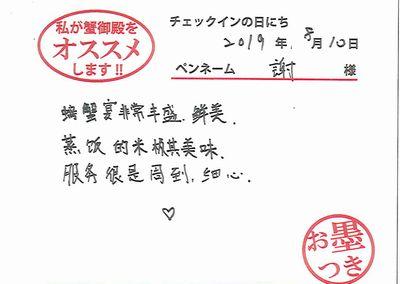 私が蟹御殿を
オススメ
します!!
チェックインの日にち
2019年 8月10日
ペンネーム 謝 様
螃蟹宴非常丰盛.鲜美.
蒸饭的米极其美味.
服务很是周到,细心.
♡
お墨
つき